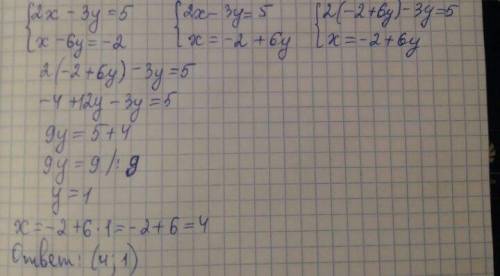 {2x - 3y = 5 {2x - 3y = 5 {2(-2+6y) - 3y = 5
{x - 6y = -2 {x = -2 + 6y {x = -2 + 6y
2(-2+6y) - 3y = 5
-4 + 12y - 3y = 5
9y = 5 + 4
9y = 9 /: 9
y = 1
x = -2 + 6 · 1 = -2 + 6 = 4
Ответ: (4; 1)